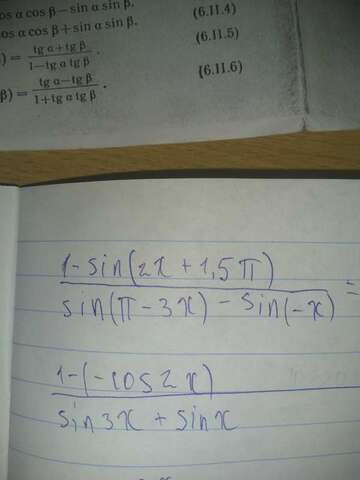 os α cos β — sin α sin β,
os α cos β + sin α sin β. (6.II.4)
) = tg α+tg β / 1—tg α tg β . (6.II.5)
β) = tg α—tg β / 1+tg α tg β . (6.II.6)
1-sin(2x+1,5π)
sin(π-3x)-sin(-x) =
1-(-cos2x)
sin3x+sinx